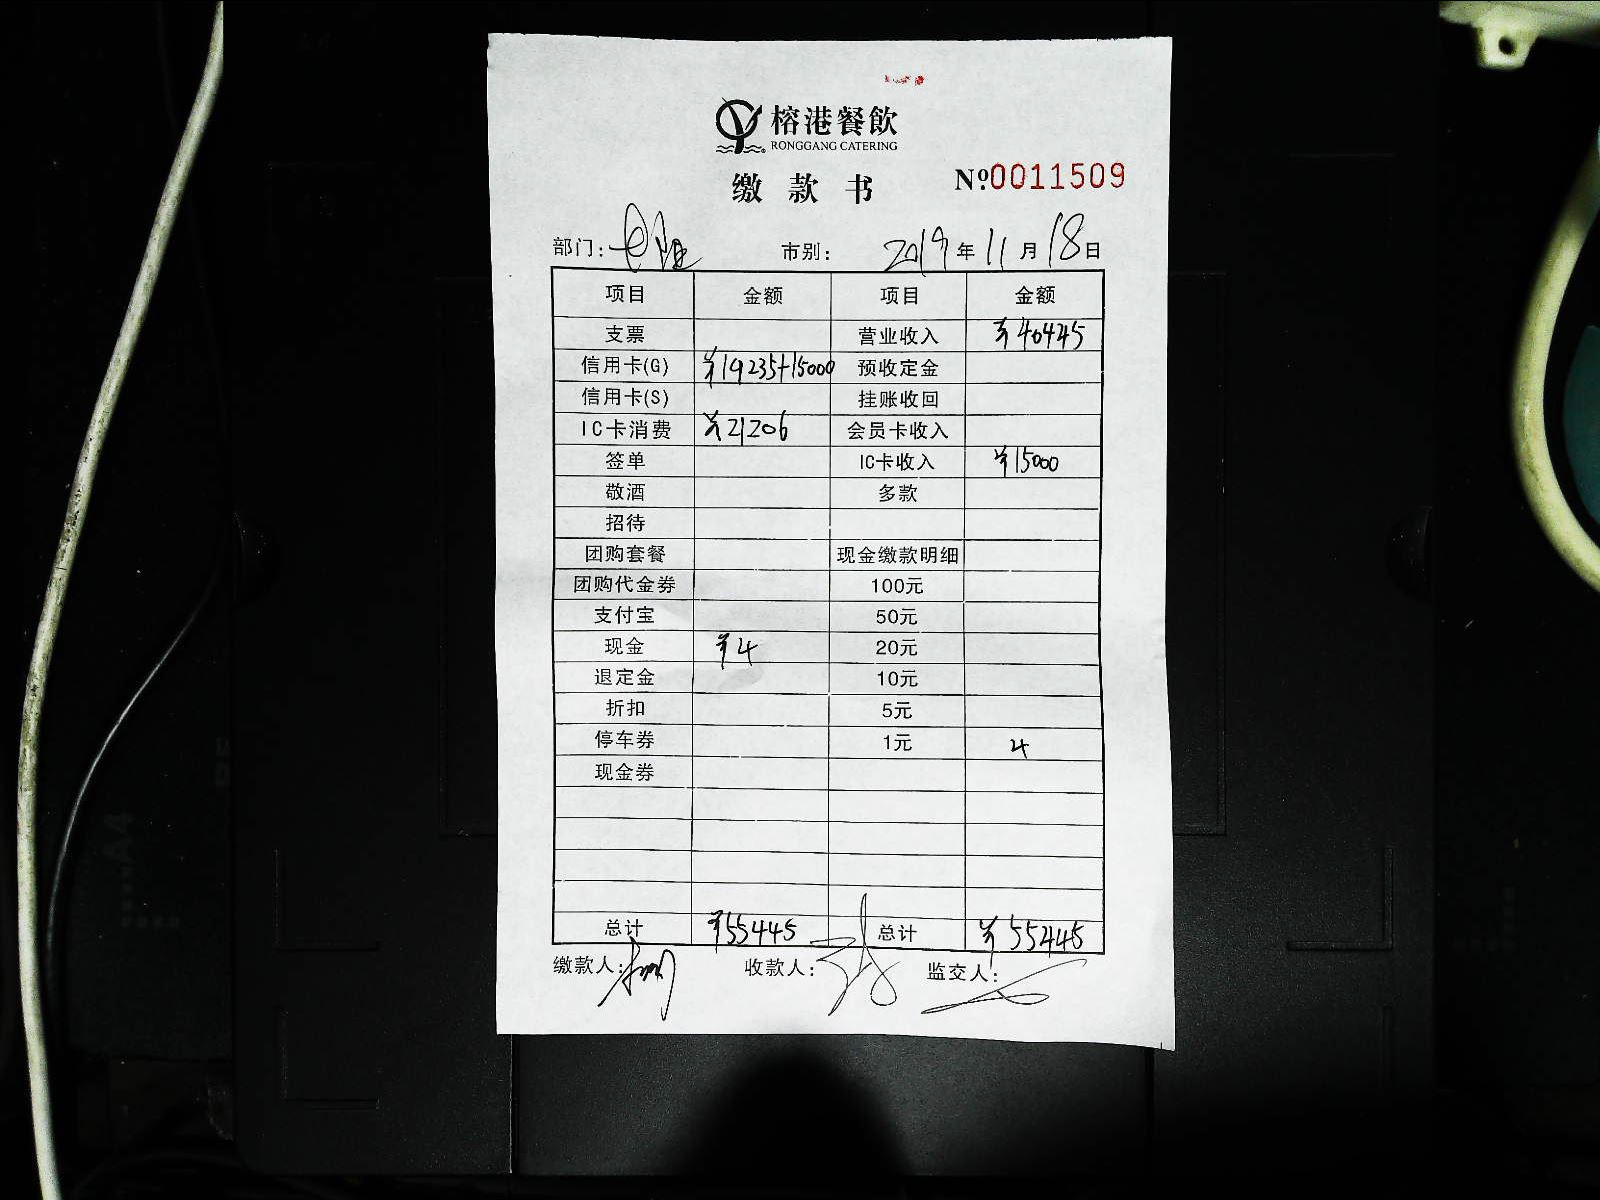 榕港餐飲
RONGGANG CATERING
缴款书 №:0011509
部门: 市别: 2019年11月18日
项目 金额 项目 金额
支票 营业收入 ¥40445
信用卡(G) ¥19235+15000 预收定金
信用卡(S) 挂账收回
IC卡消费 ¥21206 会员卡收入
签单 IC卡收入 ¥15000
敬酒 多款
招待
团购套餐 现金缴款明细
团购代金券 100元
支付宝 50元
现金 ¥4 20元
退定金 10元
折扣 5元
停车券 1元 4
现金券
总计 ¥55445 总计 ¥55445
缴款人: 收款人: 监交人: